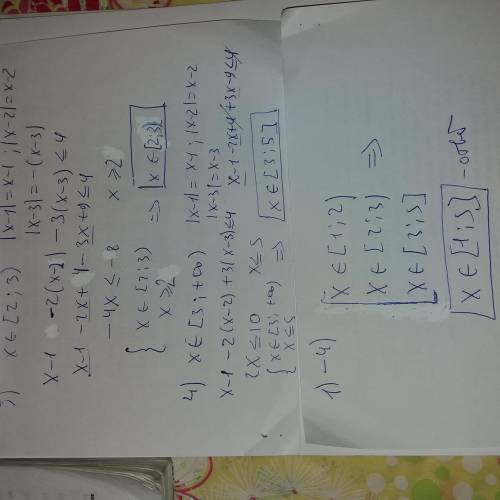 3) x ∈ [2 ; 3) |x-1| = x-1 ; |x-2| = x-2
|x-3| = -(x-3)
x-1 -2(x-2) -3(x-3) ≤ 4
x-1 -2x+4 -3x+9 ≤ 4
-4x ≤ -8 x ≥ 2
{ x ∈ [2; 3)
x ≥ 2 => x ∈ [2; 3)
4) x ∈ [3 ; +∞) |x-1| = x-1 ; |x-2| = x-2
|x-3| = x-3
x-1 -2(x-2) +3(x-3) ≤ 4 x-1-2x+4+3x-9 ≤ 4
2x ≤ 10 x ≤ 5
{ x ∈ [3; +∞)
x ≤ 5 => x ∈ [3; 5]
1) - 4)
x ∈ [1; 2)
x ∈ [2; 3) =>
x ∈ [3; 5]
x ∈ [1; 5] - ответ